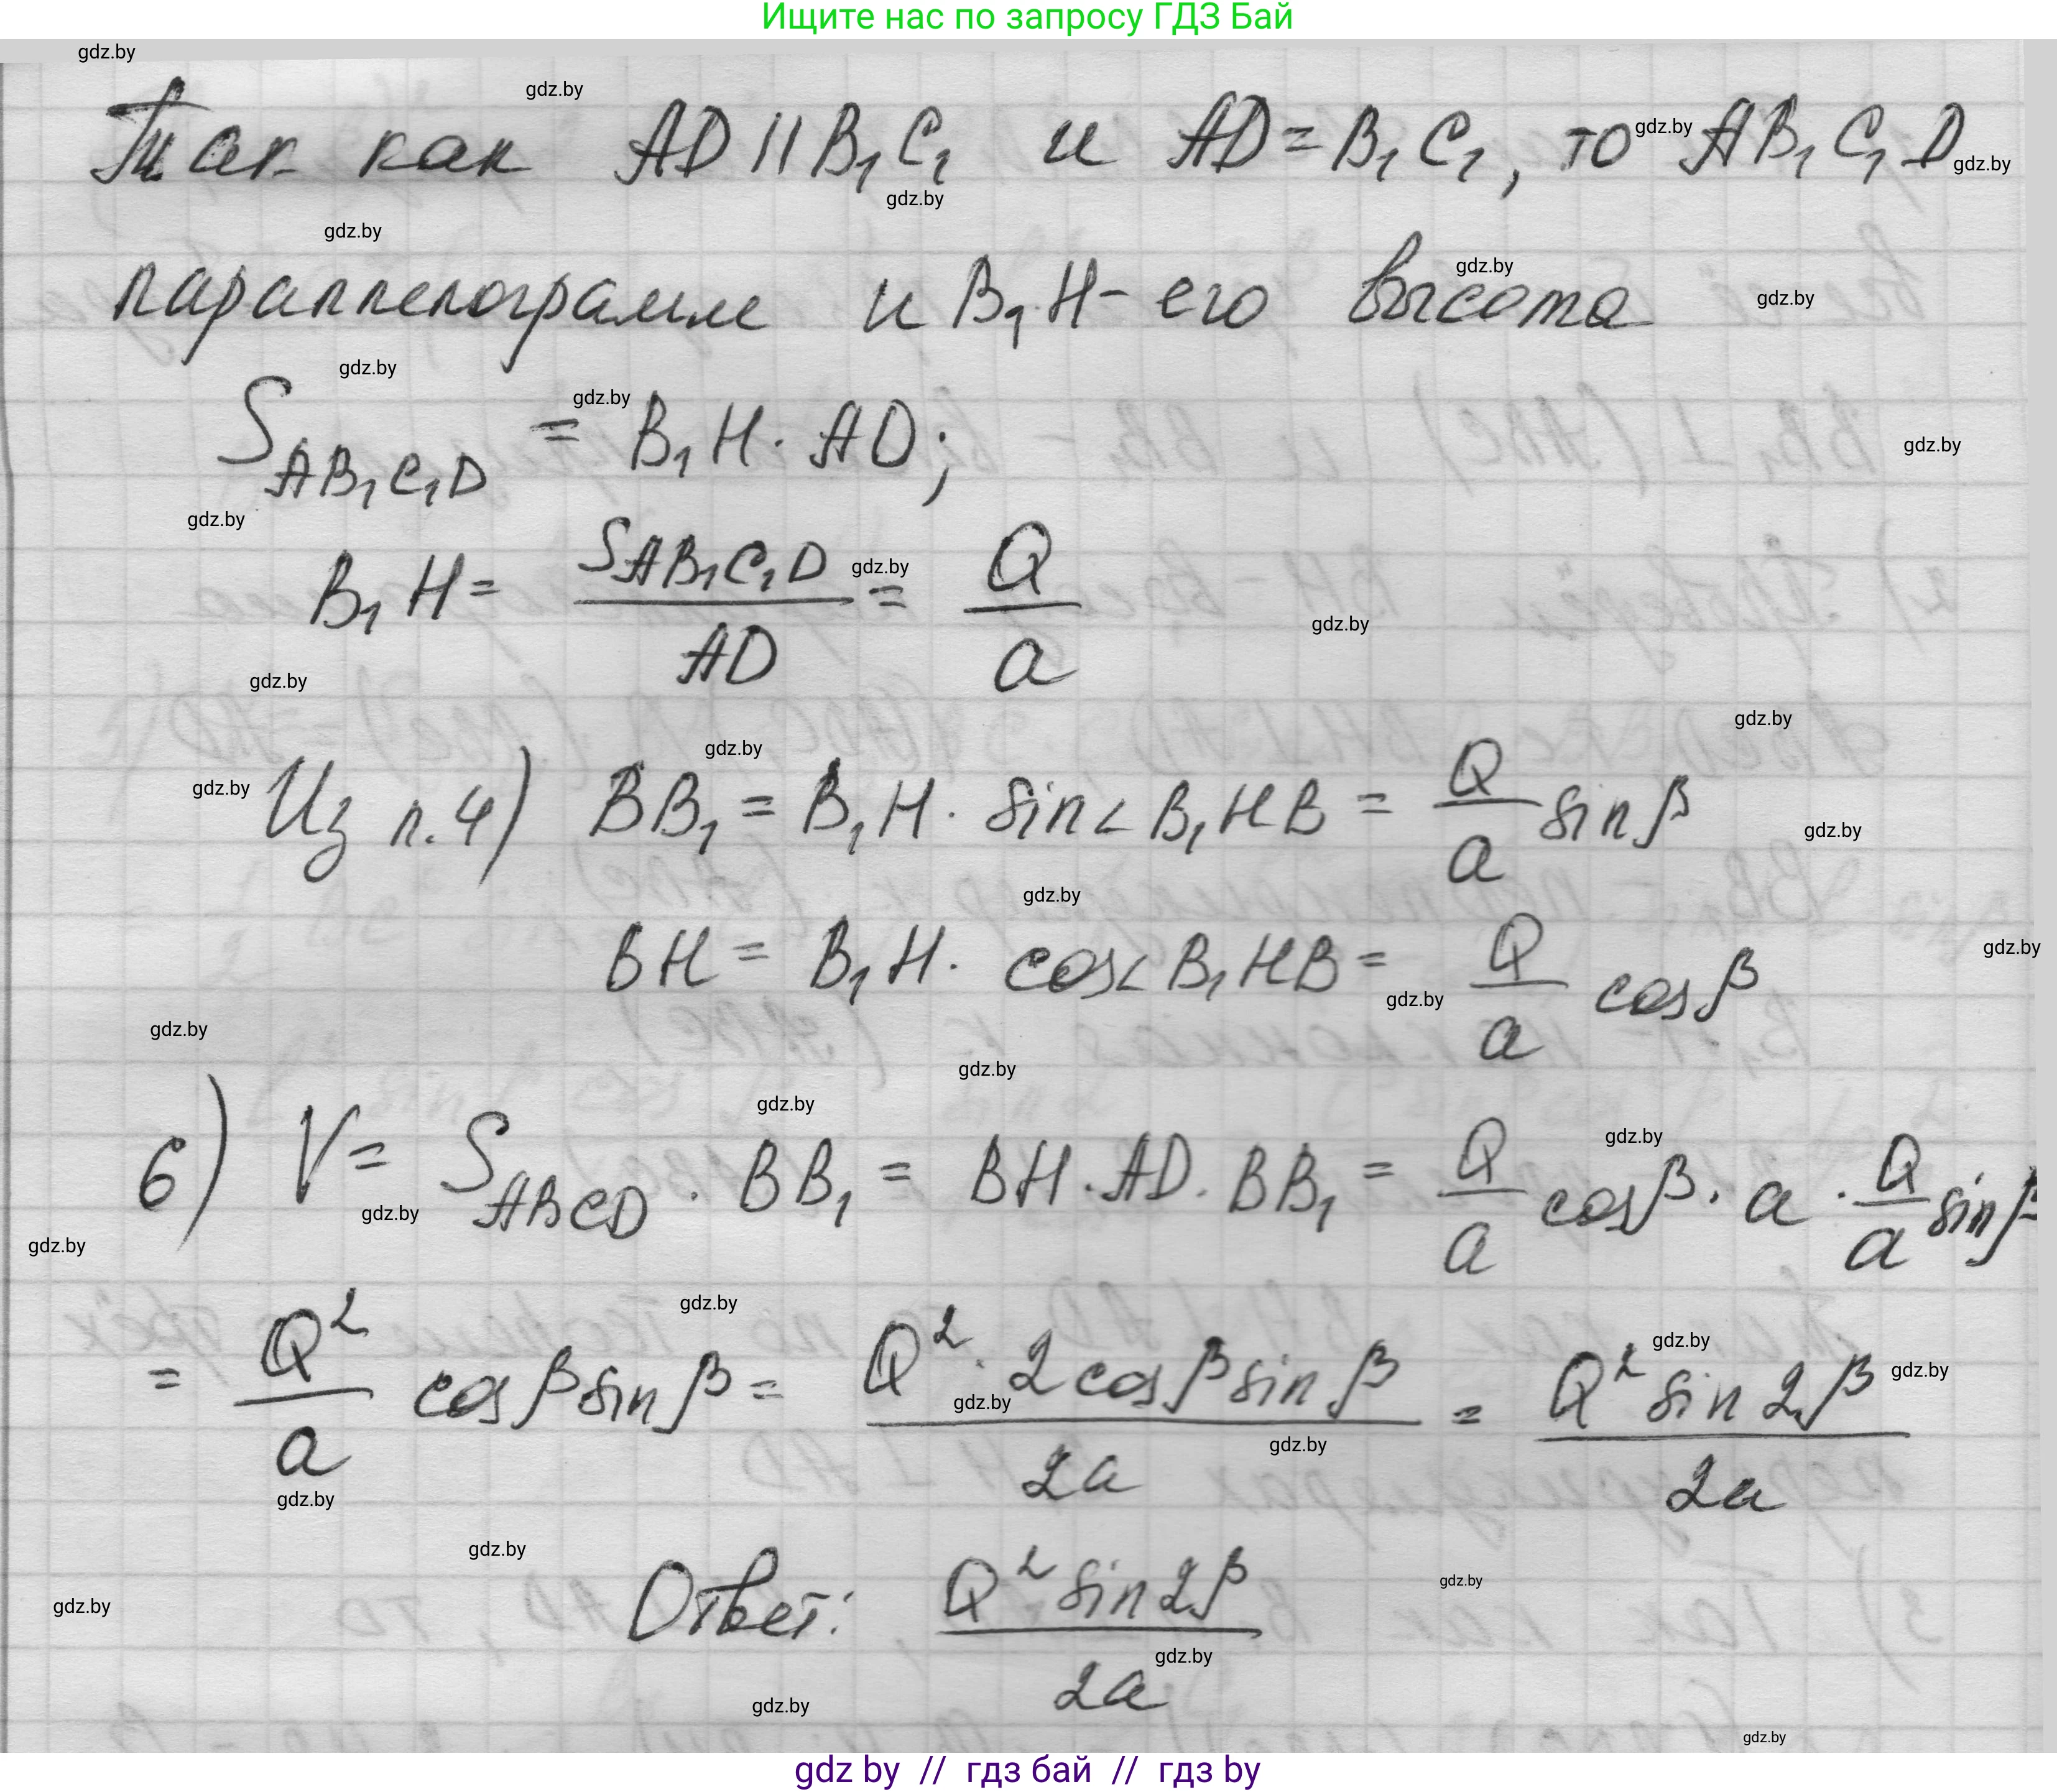 Ищите нас по запросу ГДЗ Бай
Так как AD || B₁C₁ и AD = B₁C₁, то AB₁C₁D
параллелограмм и B₁H - его высота
S_{AB₁C₁D} = B₁H · AD;
B₁H = \frac{S_{AB₁C₁D}}{AD} = \frac{Q}{a}
Из п.4) BB₁ = B₁H · sin∠B₁HB = \frac{Q}{a} sinβ
BH = B₁H · cos∠B₁HB = \frac{Q}{a} cosβ
6) V = S_{ABCD} · BB₁ = BH · AD · BB₁ = \frac{Q}{a} cosβ · a · \frac{Q}{a} sinβ
= \frac{Q²}{a} cosβ sinβ = \frac{Q² · 2cosβ sinβ}{2a} = \frac{Q² sin2β}{2a}
Ответ: \frac{Q² sin2β}{2a}
gdz by // гдз бай // гдз by